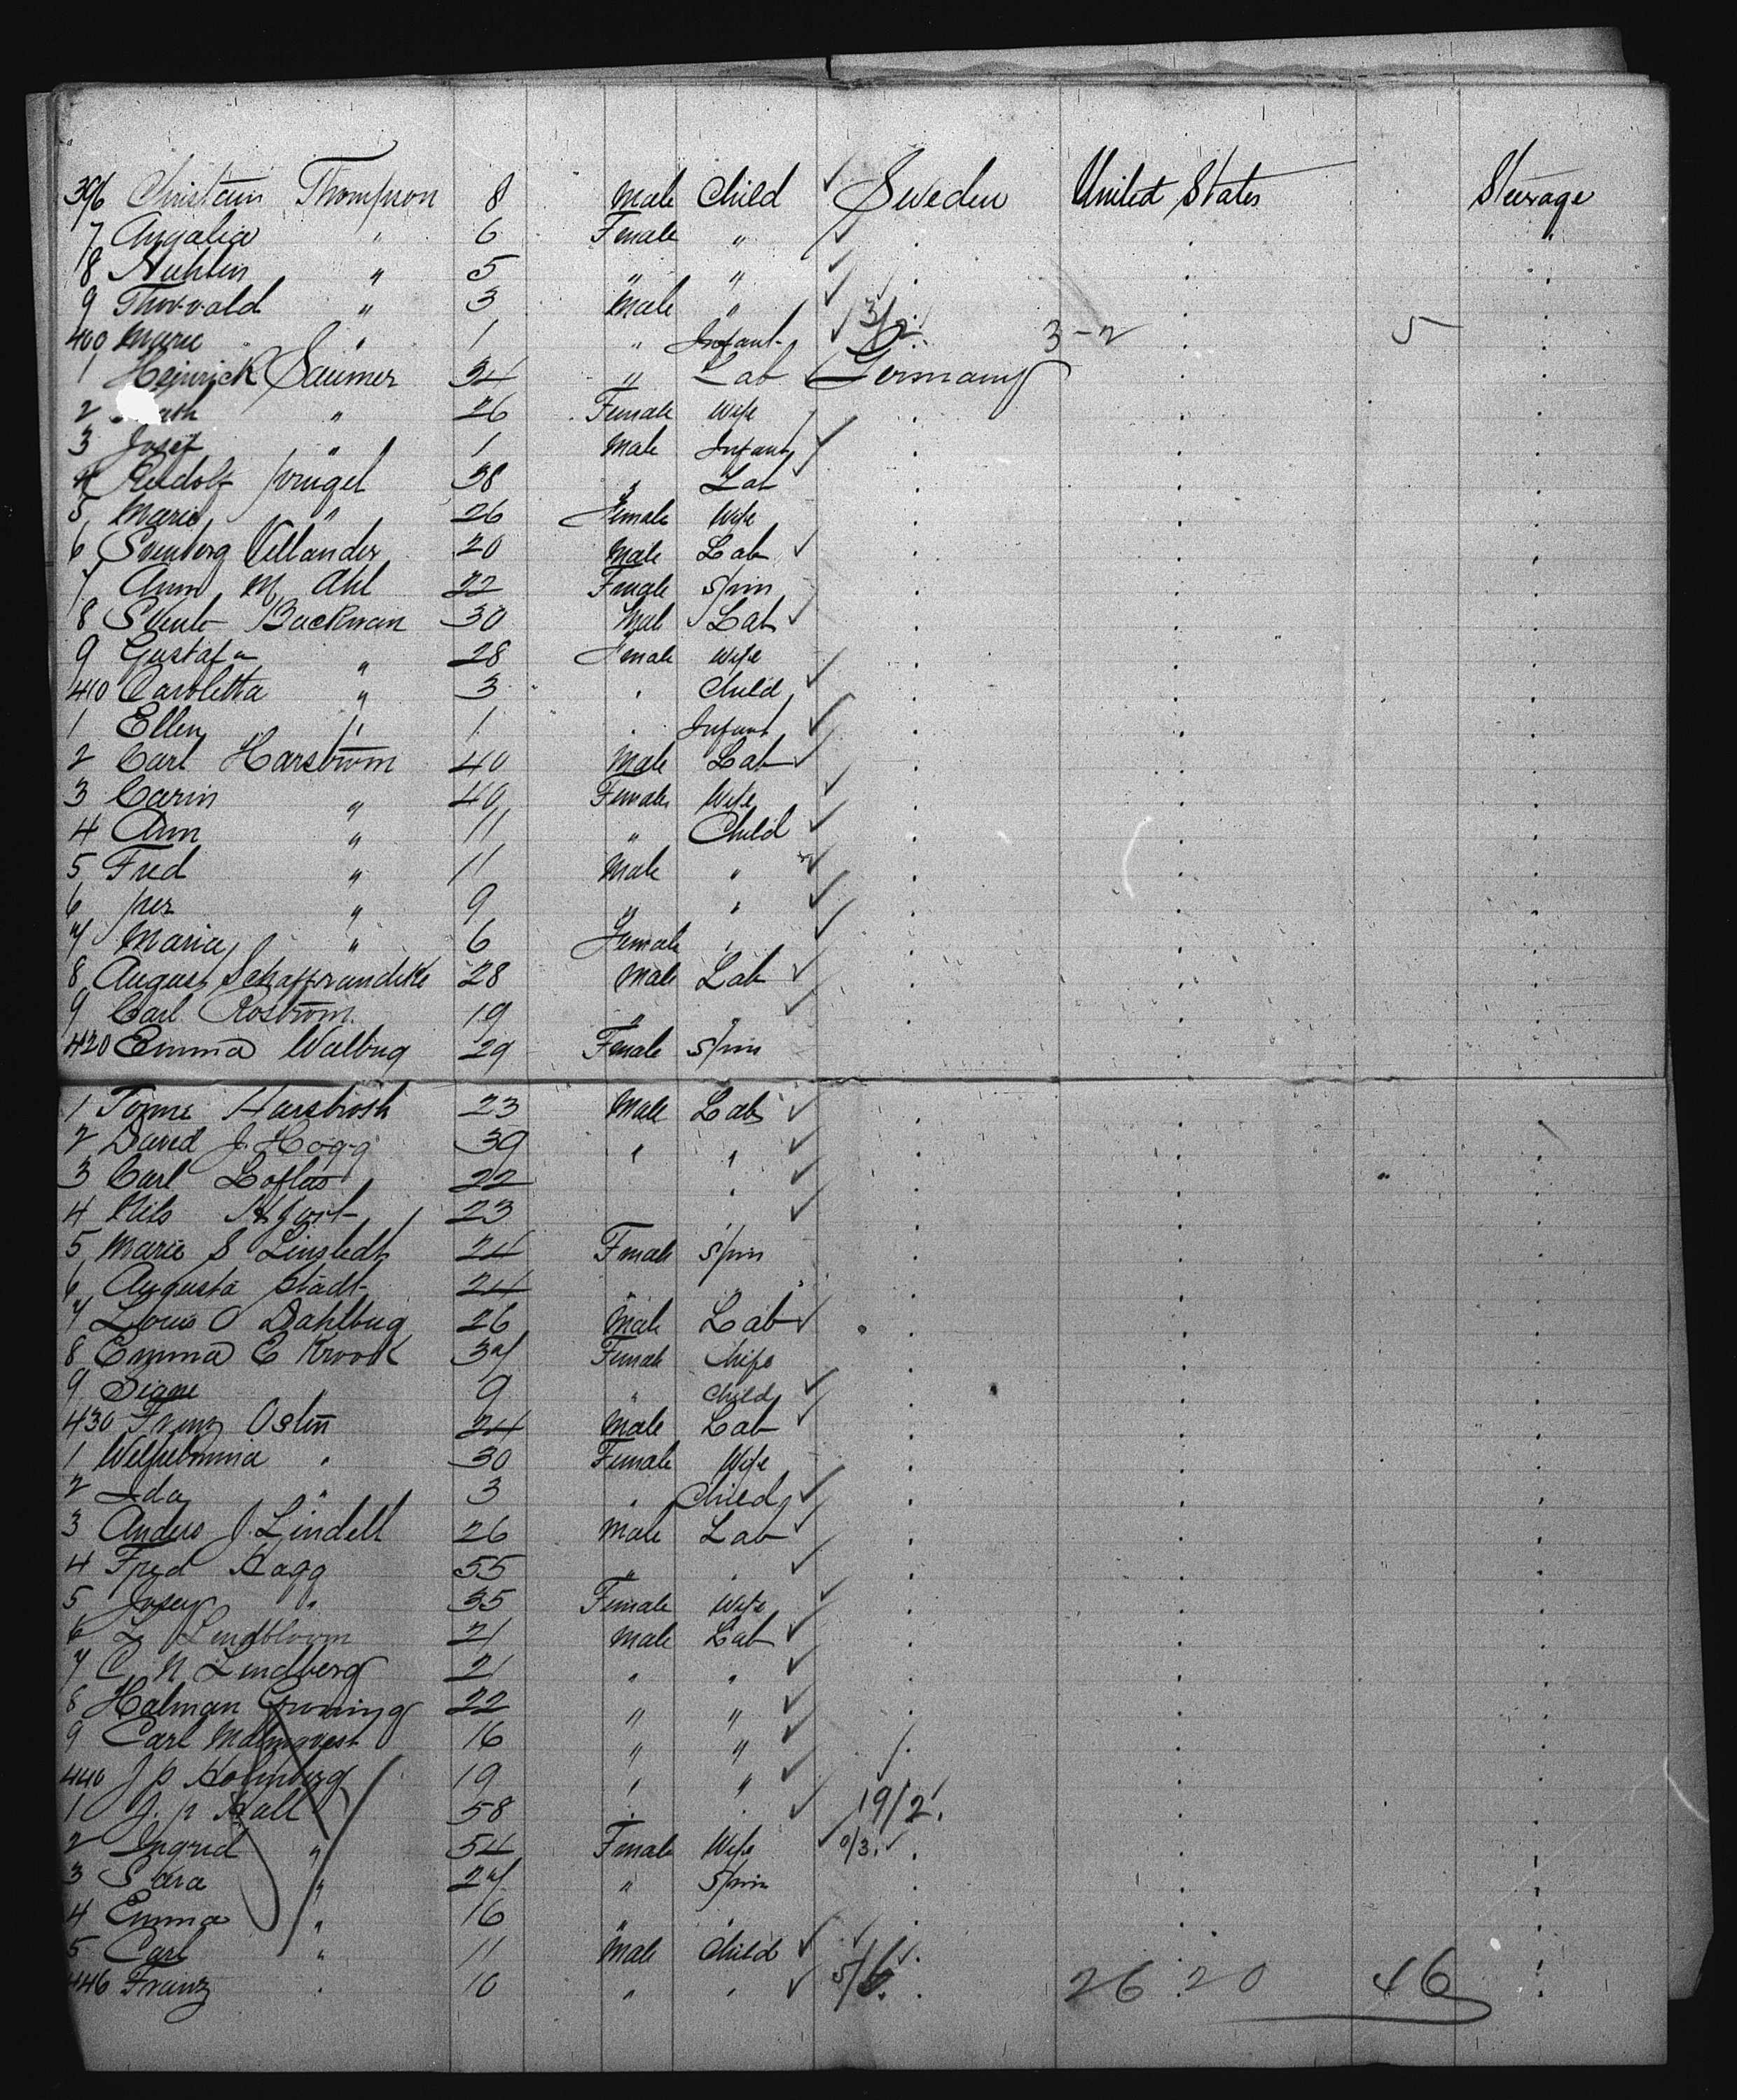 396 Christain Thompson 8 Male Child ✓ Sweden United States Steerage
7 Angalia " 6 Female " ✓ . . "
8 " 5 " " ✓ . . .
9 Thorvald " 3 Male " ✓ 3/2 . .
400 Marie " 1 " Infant ✓ 3-2 . 5 .
1 Heinrick Saumer 34 " Lab Germany .
2 " 26 Female Wife . . .
3 Josef " 1 Male Infant ✓ . . .
4 Rudolf 38 " Lab . . .
5 Marie " 26 Female Wife . . .
6 Svenberg Vellander 20 Male Lab ✓ . . .
7 Ann M Ahl 22 Female Spin . . .
8 Svente Backman 30 Male Lab ✓ . . .
9 Gustafa " 28 Female Wife . . .
410 Caroletta " 3 . Child ✓ . . .
1 Ellen " 1 . Infant ✓ . . .
2 Carl Harstrom 40 Male Lab ✓ . . .
3 Carin " 40 Female Wife ✓ . . .
4 Ann " 11 " Child ✓ . . .
5 Fred " 11 Male " ✓ . . .
6 per " 9 " " ✓ . . .
7 Maria " 6 Female " ✓ . . .
8 August 28 Male Lab ✓ . . .
9 Carl Rostrom 19 " " ✓ . . .
420 Emma Walbug 29 Female Spin . . .
1 23 Male Lab ✓ . . .
2 David J. Hogg 39 " " ✓ . . .
3 Carl 22 " ✓ . . .
4 Nils 23 ✓ . . .
5 Marie S Linstedt 24 Female Spin . . .
6 Augusta Stadt 24 " " . . .
7 Louis O Dahlbug 26 Male Lab ✓ . . .
8 Emma C Krook 37 Female Wife . . .
9 Signe " 9 " Child ✓ . . .
430 Franz Oslin 24 Male Lab . . .
1 Wilhelmina " 30 Female Wife . . .
2 Ida " 3 " Child ✓ . . .
3 Anders J. Lindell 26 Male Lab ✓ . . .
4 Fred Hagg 55 " . ✓ . . .
5 " 35 Female Wife ✓ . . .
6 L Lindbloom 21 Male Lab ✓ . . .
7 C. N Lindberg 21 " " ✓ . . .
8 Halman Groning 22 " " ✓ . . .
9 Carl Malmqvest 16 " " ✓ . . .
440 J p Holmberg 19 " " ✓ . . .
1 J. p Hall 58 . . ✓ 19/2. . .
2 Ingrid " 54 Female Wife ✓ 0/3. . .
3 Sara " 27 " Spin . . .
4 Emma " 16 " . . . .
5 Carl " 11 Male Child ✓ . . .
446 Franz . 10 " " ✓ 5/6. 26 20 46 .